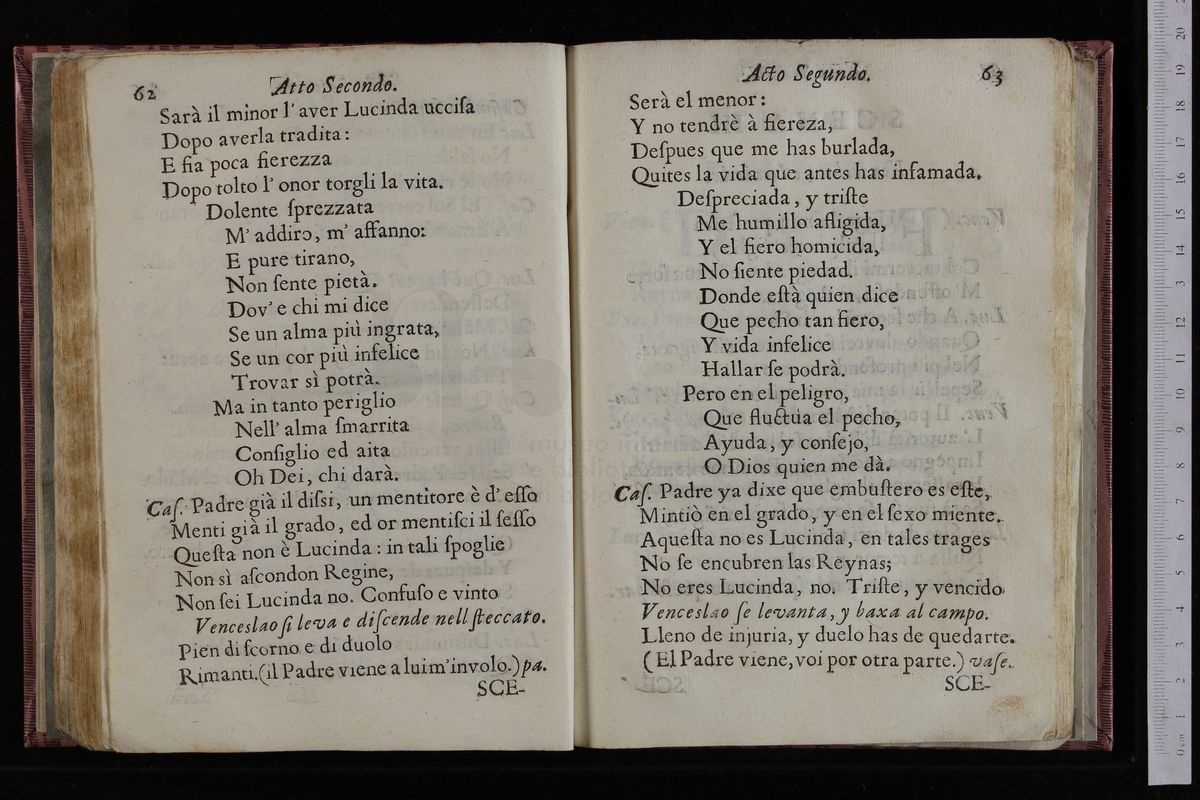 62 Atto Secondo.
Sarà il minor l' aver Lucinda ucciſa
Dopo averla tradita:
E fia poca fierezza
Dopo tolto l' onor torgli la vita.
Dolente ſprezzata
M' addiro, m' affanno:
E pure tirano,
Non ſente pietà.
Dov' e chi mi dice
Se un alma più ingrata,
Se un cor più infelice
Trovar sì potrà.
Ma in tanto periglio
Nell' alma ſmarrita
Conſiglio ed aita
Oh Dei, chi darà.
Caſ. Padre già il diſsi, un mentitore è d' eſſo
Menti già il grado, ed or mentiſci il ſeſſo
Queſta non è Lucinda: in tali ſpoglie
Non sì aſcondon Regine,
Non ſei Lucinda no. Confuſo e vinto
Venceslao ſi leva e diſcende nell ſteccato.
Pien di ſcorno e di duolo
Rimanti.(il Padre viene a lui m'involo.) pa.
SCE-
Acto Segundo. 63
Serà el menor:
Y no tendrè à fiereza,
Deſpues que me has burlada,
Quites la vida que antes has infamada.
Deſpreciada, y triſte
Me humillo afligida,
Y el fiero homicida,
No ſiente piedad.
Donde eſtà quien dice
Que pecho tan fiero,
Y vida infelice
Hallar ſe podrà.
Pero en el peligro,
Que fluctua el pecho,
Ayuda, y conſejo,
O Dios quien me dà.
Caſ. Padre ya dixe que embuſtero es eſte,
Mintiò en el grado, y en el ſexo miente.
Aqueſta no es Lucinda, en tales trages
No ſe encubren las Reynas;
No eres Lucinda, no. Triſte, y vencido
Venceslao ſe levanta, y baxa al campo.
Lleno de injuria, y duelo has de quedarte.
(El Padre viene, voi por otra parte.) vaſe.
SCE-
0 cm 1 2 3 4 5 6 7 8 9 10 11 12 13 14 15 16 17 18 19 20